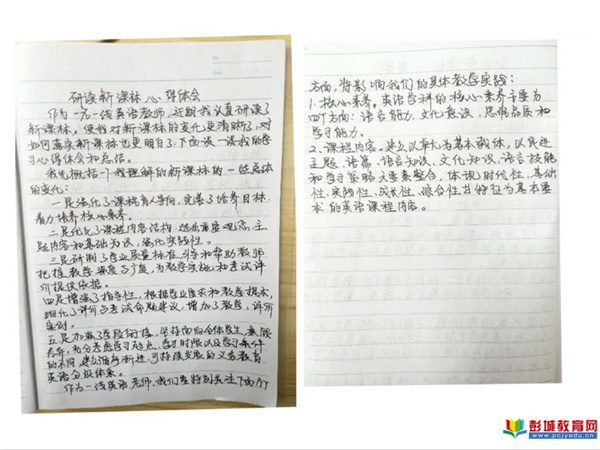 研读新课标心得体会
作为一名一线英语教师,近期我认真研读了
新课标,使我对新课标的变化更清晰了,对
如何落实新课标也更明白了.下面谈一谈我的学
习心得体会和总结。
我先概括一下我理解的新课标的一些总体
的变化:
一是强化了课程育人导向,完善了培养目标,
着力培养核心素养。
二是优化了课程内容结构,
内容和基础知识,强化实践性。
三是研制了学业质量标准,引导和帮助教师
把握教学深度与广度,为教学实施和考试评
价提供依据。
四是增强了指导性,根据学业要求和教学提示,
细化了评价与考试命题建议,增加了教学、评价
案例。
五是加强了学段衔接,
的不同,建立循序渐进、可持续发展的义务教育
英语分级体系。
作为一线英语老师,我们要特别关注下面几个
方向,将影响我们的具体教学实践:
1.核心素养。英语学科的核心素养主要为
四个方向:语言能力、文化意识、思维品质和
学习能力。
2.课程内容。建立以单元为基本载体,以
主题、语篇、语言知识、文化知识、语言技能
和学习策略六要素整合,体现时代性、基础
性、实践性、成长性、综合性五特征为基本要
求的英语课程内容。
彭城教育网
www.pcjyedu.cn